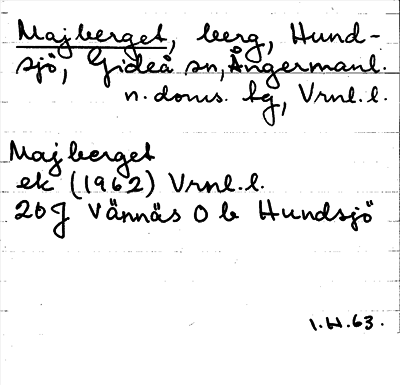 Majberget, berg, Hund-
sjö, Gideå sn, Ångermanl.
n. doms. hg, Vrnl. l.
Majberget
ek (1962) Vrnl. l.
20J Vännäs O b Hundsjö
1.H.63.